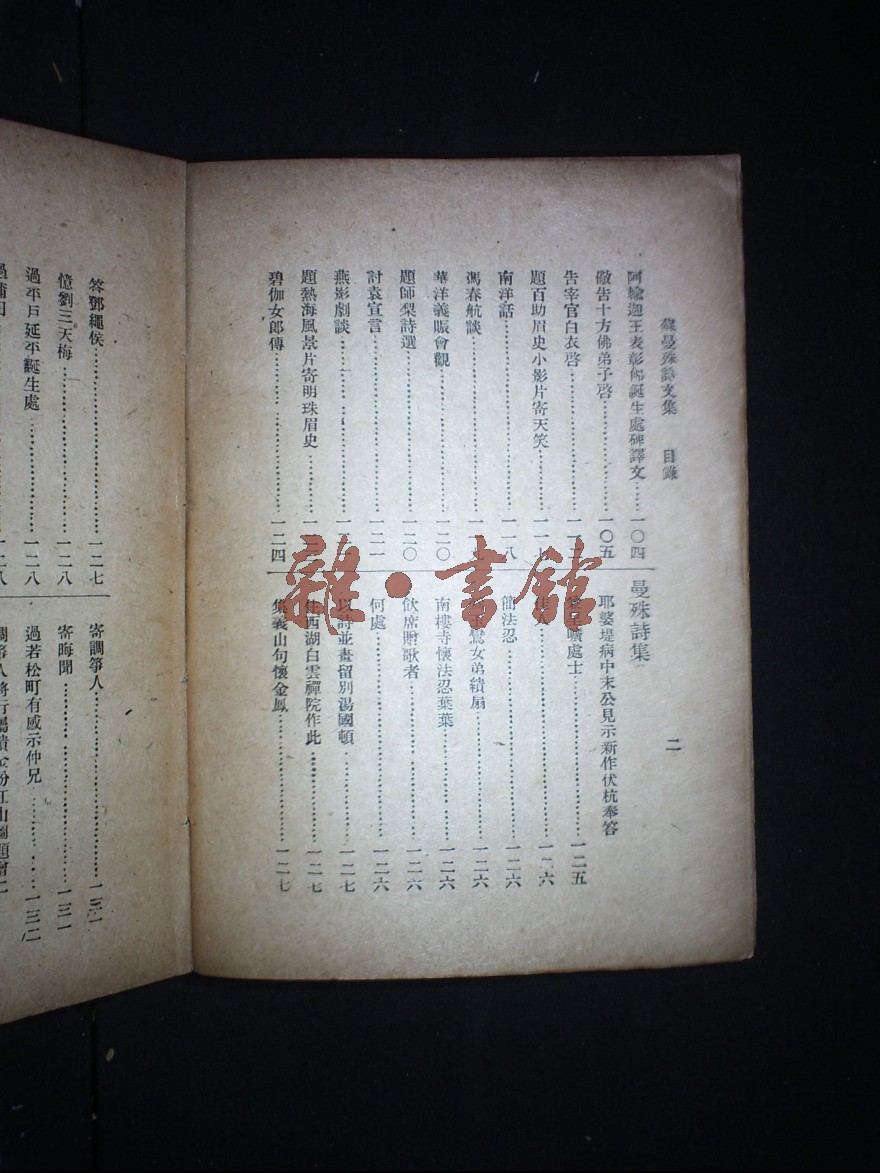 蘇曼殊詩文集 目錄 二
阿輸迦王表彰佛誕生處碑譯文……一〇四
儆告十方佛弟子啓……一〇五
告宰官白衣啓……一一
題百助眉史小影片寄天笑……一一
南洋話……一一八
馮春航談……一一
華洋義賑會觀……一二〇
題師梨詩選……一二〇
討袁宣言……一二一
燕影劇談……一
題熱海風景片寄明珠眉史……一
碧伽女郎傳……一二四
曼殊詩集
耶婆堤病中末公見示新作伏枕奉答
曠處士……一二五
人……一二六
簡法忍……一二六
鶯女弟繢扇……一二六
南樓寺懷法忍葉葉……一二六
飲席贈歌者……一二六
何處……一二六
以詩並畫留別湯國頓……一二七
住西湖白雲禪院作此……一二七
集義山句懷金鳳……一二七
答鄧繩侯……一二七
憶劉三天梅……一二八
過平戶延平誕生處……一二八
過蒲田……一二八
寄調箏人……一三一
寄晦聞……一三一
過若松町有感示仲兄……一三二
調箏人將行屬繢金粉江山圖題贈二
雜·書館